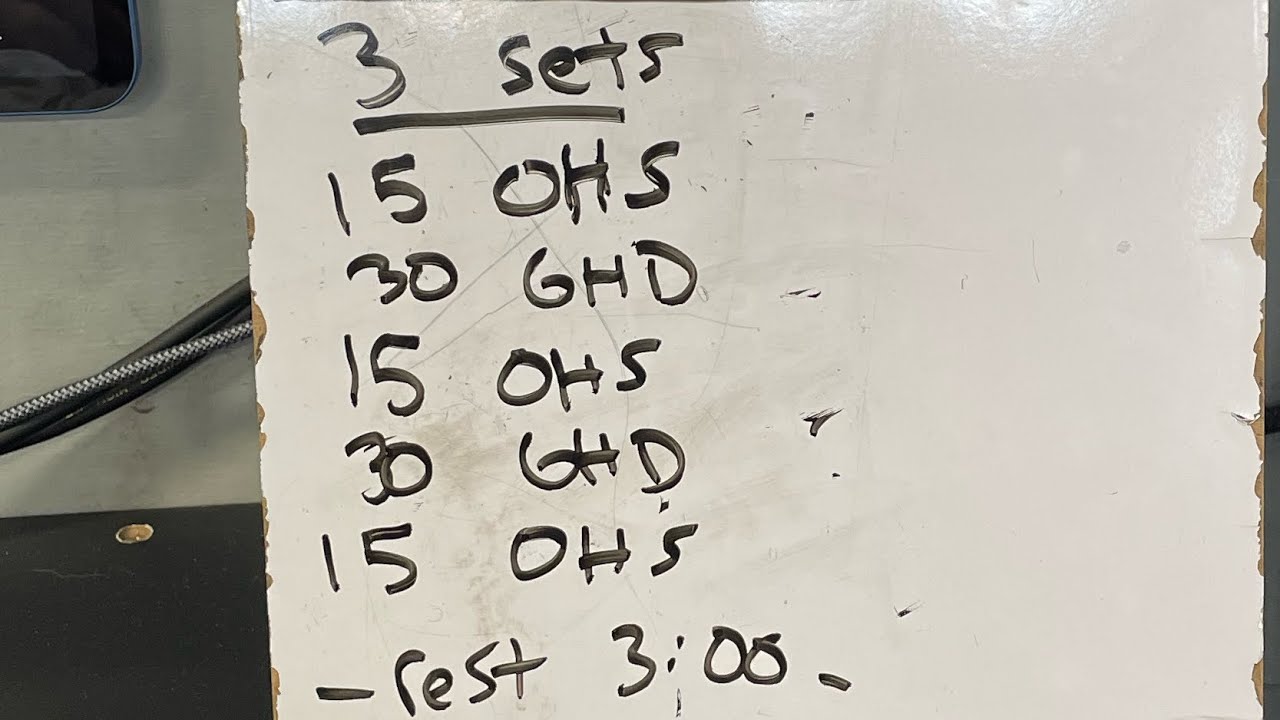 3 sets
15 OHS
30 GHD
15 OHS
30 GHD
15 OHS
- rest 3:00 -